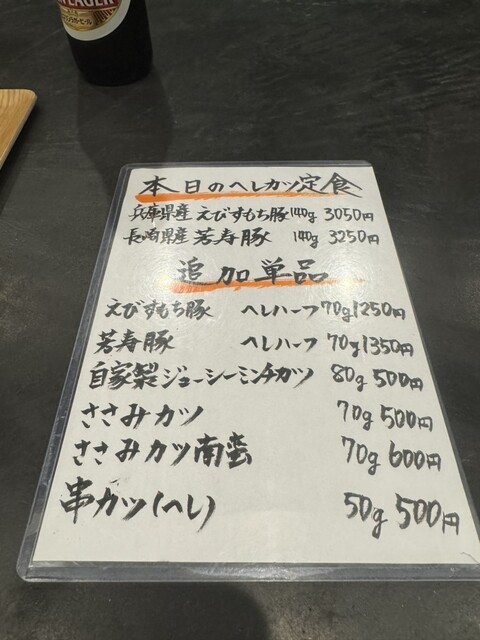 LAGER
本日のヘレカツ定食
兵庫県産 えびすもち豚 140g 3050円
長崎県産 芳寿豚 140g 3250円
追加単品
えびすもち豚 ヘレハーフ 70g 1250円
芳寿豚 ヘレハーフ 70g 1350円
自家製ジューシーミンチカツ 80g 500円
ささみカツ 70g 500円
ささみカツ南蛮 70g 600円
串カツ(ヘレ) 50g 500円